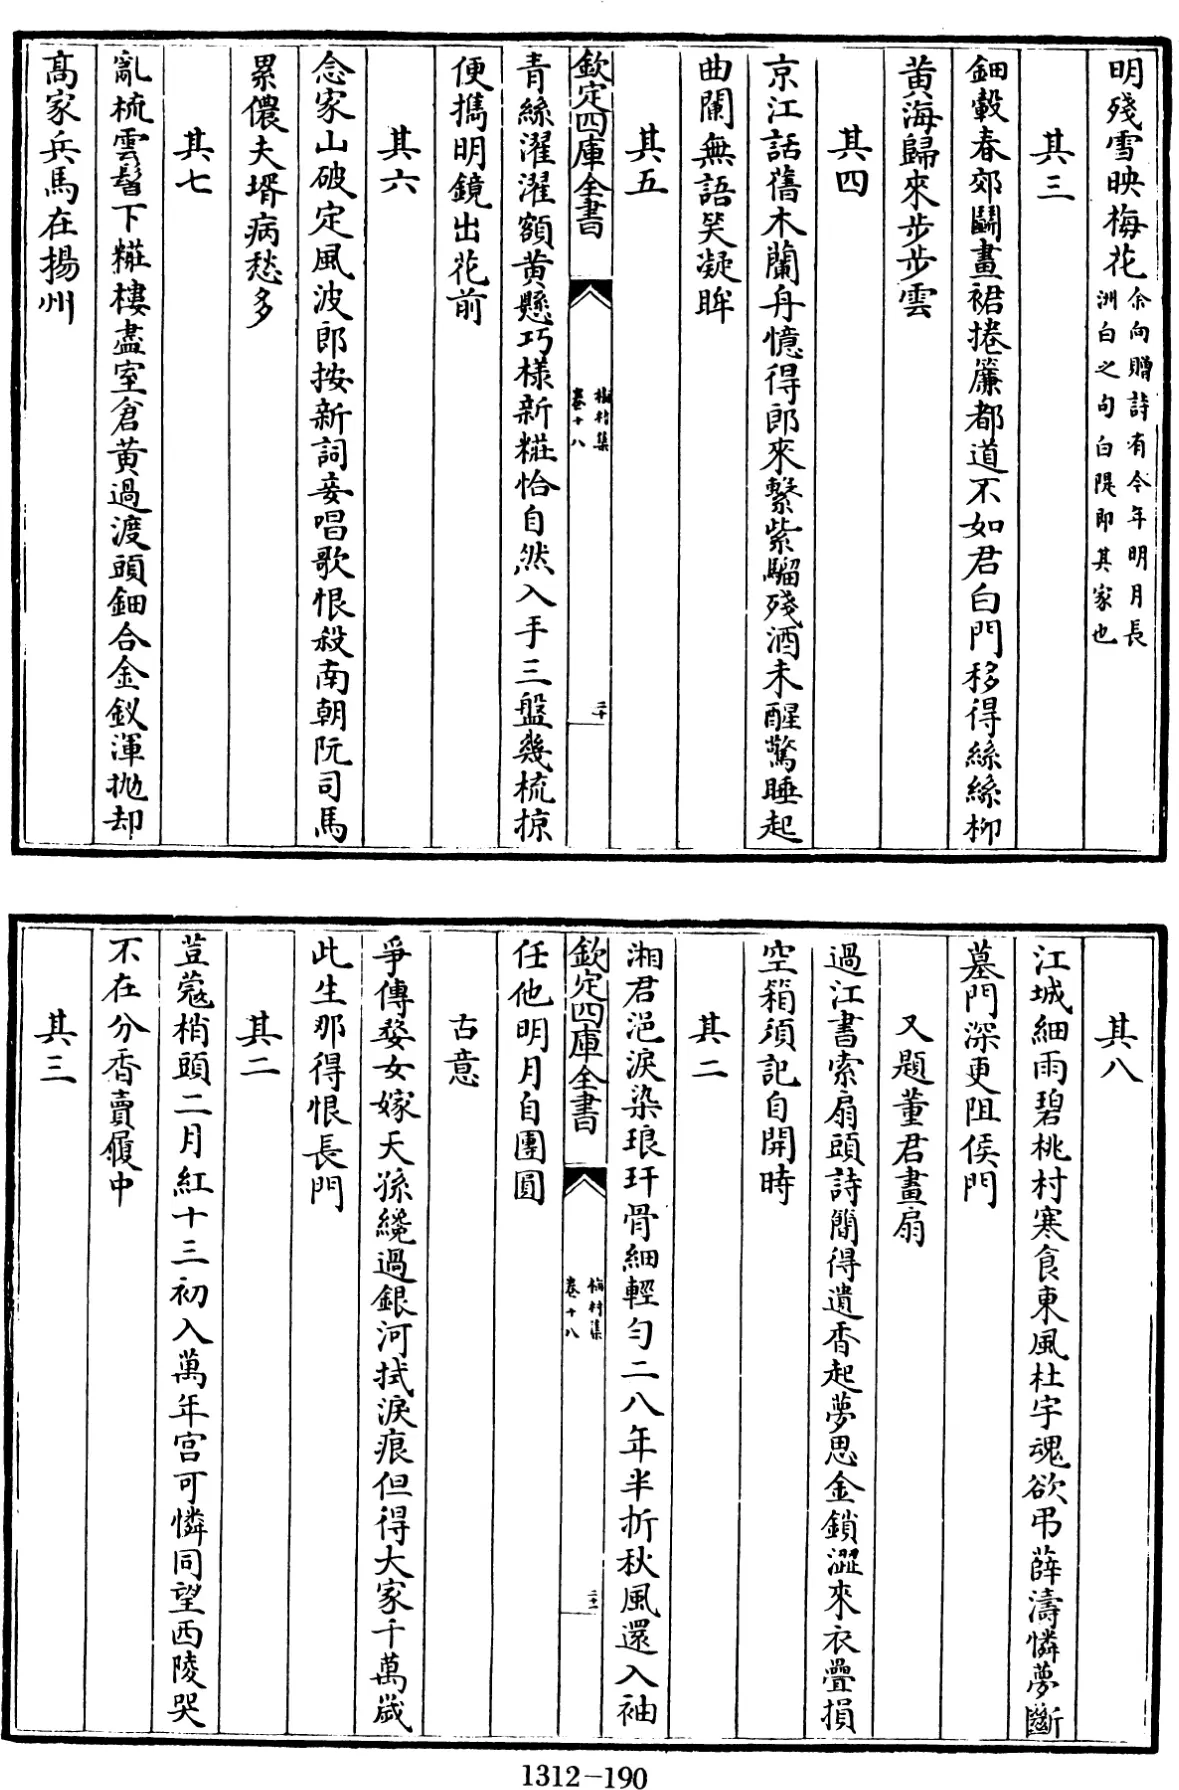 明殘雪映梅花余向贈詩有今年明月長
洲白之句白隄即其家也
其三
鈿轂春郊鬭畫裙捲簾都道不如君白門移得絲絲柳
黄海歸來步步雲
其四
京江話舊木蘭舟憶得郎來繫紫騮殘酒未醒驚睡起
曲闌無語笑凝眸
其五
欽定四庫全書
梅村集
卷十八
二十
青絲濯濯額黄懸巧様新糚恰自然入手三盤幾梳掠
便擕明鏡出花前
其六
念家山破定風波郎按新詞妾唱歌恨殺南朝阮司馬
累儂夫壻病愁多
其七
亂梳雲髻下糚樓盡室倉黄過渡頭鈿合金釵渾抛却
髙家兵馬在揚州
其八
江城細雨碧桃村寒食東風杜宇魂欲弔薛濤憐夢斷
墓門深更阻侯門
又題董君畫扇
過江書索扇頭詩簡得遺香起夢思金鎖澀來衣疊損
空箱須記自開時
其二
湘君浥淚染琅玕骨細輕勻二八年半折秋風還入袖
欽定四庫全書
梅村集
卷十八
二十一
任他明月自團圓
古意
爭傳婺女嫁天孫纔過銀河拭淚痕但得大家千萬歳
此生那得恨長門
其二
荳蔻梢頭二月紅十三初入萬年宫可憐同望西陵哭
不在分香賣履中
其三
1312-190